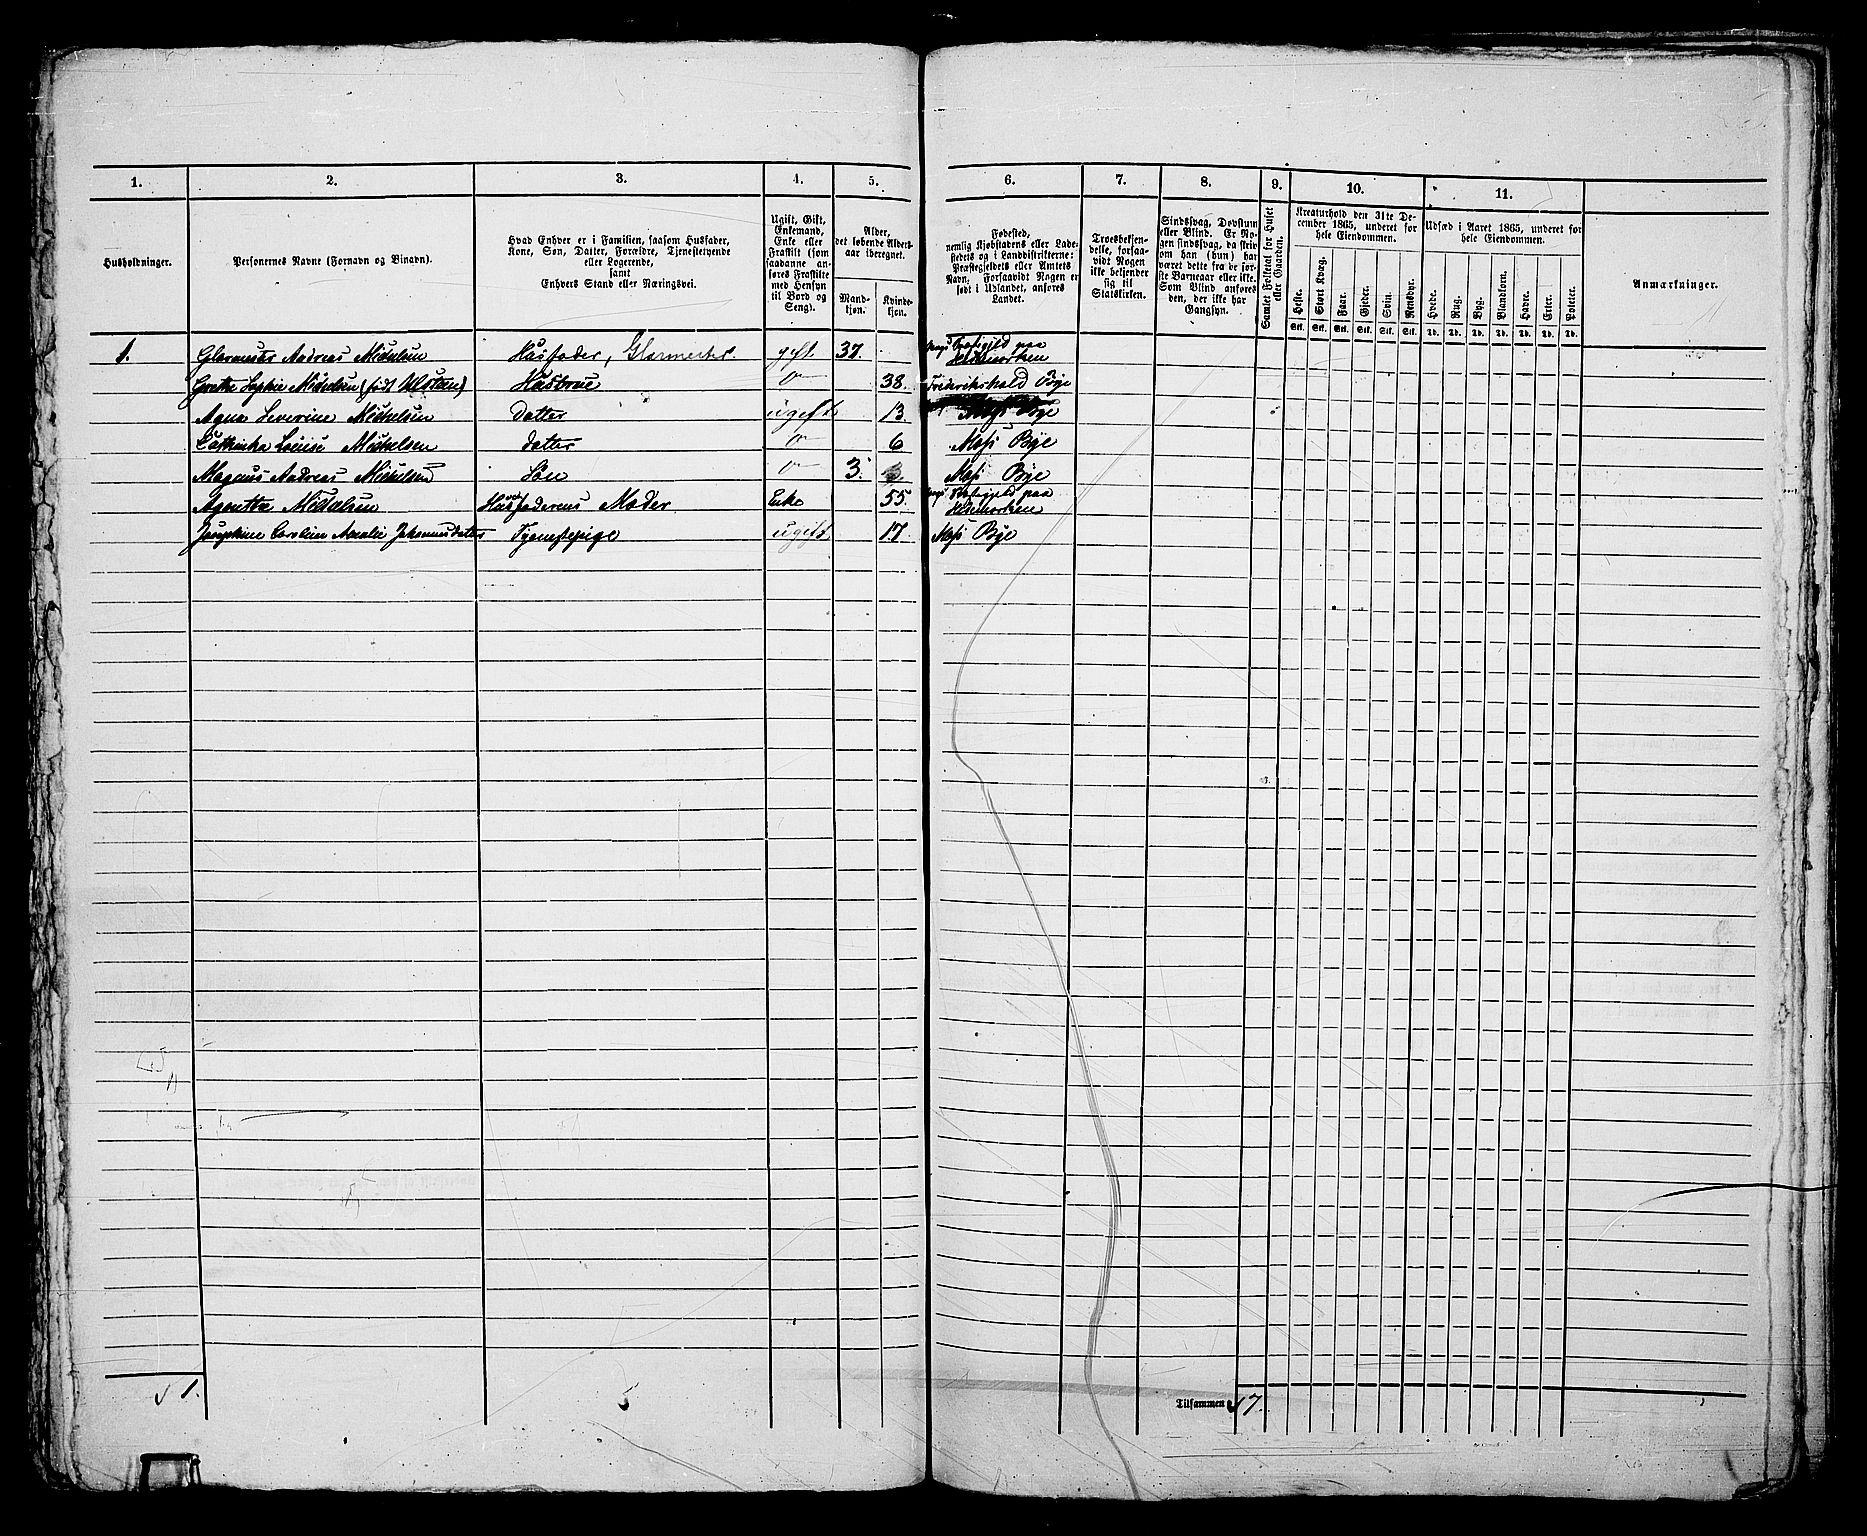 1. 2. 3. 4. 5. 6. 7. 8. 9. 10. 11.
Husholdninger.
Personernes Navne (Fornavn og Binavn).
Hvad Enhver er i Familien, saasom Husfader,
Kone, Søn, Datter, Forældre, Tjenestetyende
eller Logerende,
samt
Enhvers Stand eller Næringsvei.
Ugift, Gift,
Enkemand,
Enke eller
Fraskilt (som
saadanne an-
føres Fraskilte
med Hensyn
til Bord og
Seng).
Alder,
det løbende Alders-
aar iberegnet.
Mand-
kjøn.
Kvinde-
kjøn.
Fødested,
nemlig Kjøbstadens eller Lade-
stedets og i Landdistrikterne:
Præstegjeldets eller Amtets
Navn. Forsaavidt Nogen er
født i Udlandet, anføres
Landet.
Troesbekjen-
delse, forsaa-
vidt Nogen
ikke bekjender
sig til
Statskirken.
Sindssvag, Døvstum
eller Blind. Er No-
gen sindssvag, da skriv
om han (hun) har
været dette fra de før-
ste Barneaar eller ikke.
Som Blind anføres
den, der ikke har
Gangsyn.
Samlet Folketal for Huset
eller Gaarden.
Kreaturhold den 31te De-
cember 1865, underet for
hele Eiendommen.
Heste. Stort Kvæg. Faar. Gjeder. Svin. Rensdyr.
Stk. Stk. Stk. Stk. Stk. Stk.
Udsæd i Aaret 1865, underet for
hele Eiendommen.
Hvede. Rug. Byg. Blandkorn. Havre. Erter. Poteter.
Td. Td. Td. Td. Td. Td. Td.
Anmærkninger.
1. Glarmester Andreas Mickelsen Husfader, Glarmester. gift 37. Præstegjeld paa
Hedemarken
Grethe Sophie Mickelsen (født) Hustrue 38. Frederikshald Bye
Agna Severine Mickelsen Datter ugift 13. Moss Bye
Cathinka Louise Mickelsen datter 6 Moss Bye
Magnus Andreas Mickelsen Søn 3. Moss Bye
Agnethe Mickelsen Husfaderens Moder Enke 55. Præstegjeld paa
Hedemarken
Josephine Caroline Amalie Johannesdatter Tjenestepige ugift 17. Moss Bye
1. 5 Tilsammen 7.